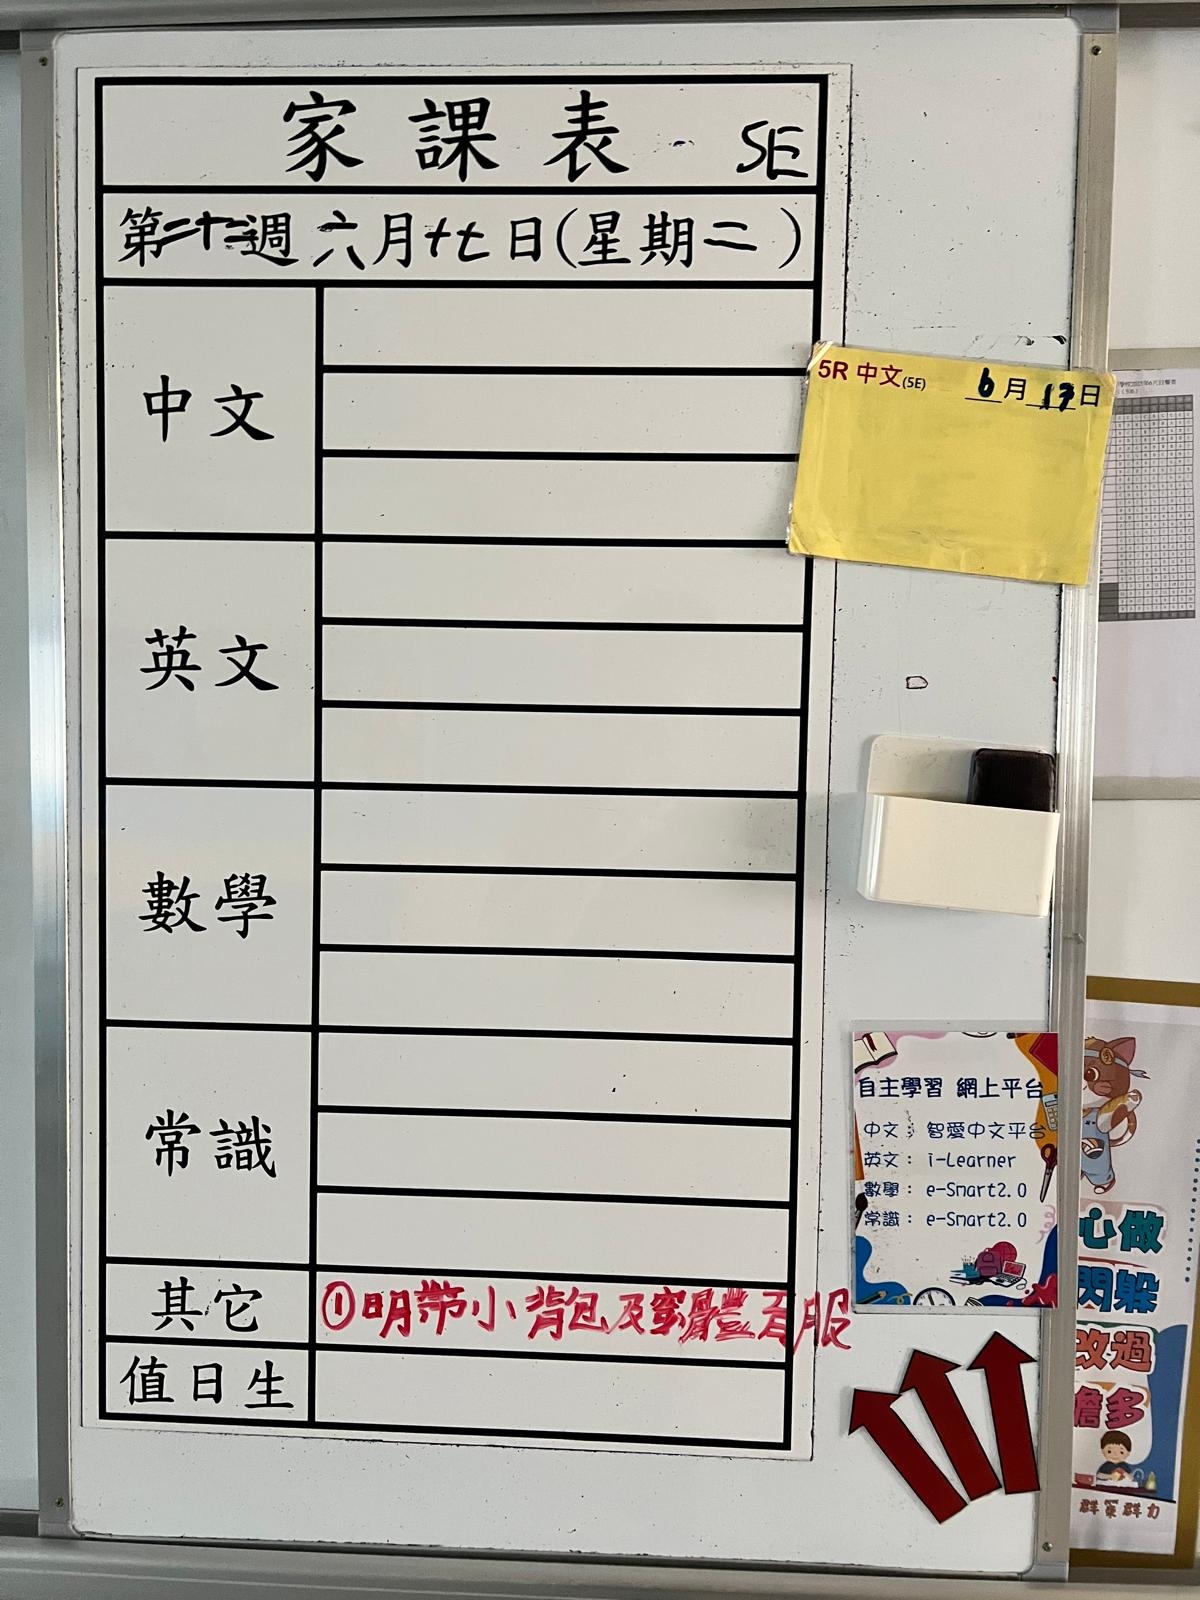 家課表 5E
第二十三週 六月十七日(星期二)
中文
5R 中文(5E) 6月17日
英文
數學
常識
自主學習 網上平台
中文： 智愛中文平台
英文： i-Learner
數學： e-Smart2.0
常識： e-Smart2.0
其它
①明帶小背包及穿體育服
值日生
心做
閃躲
改過
擔多
群策群力